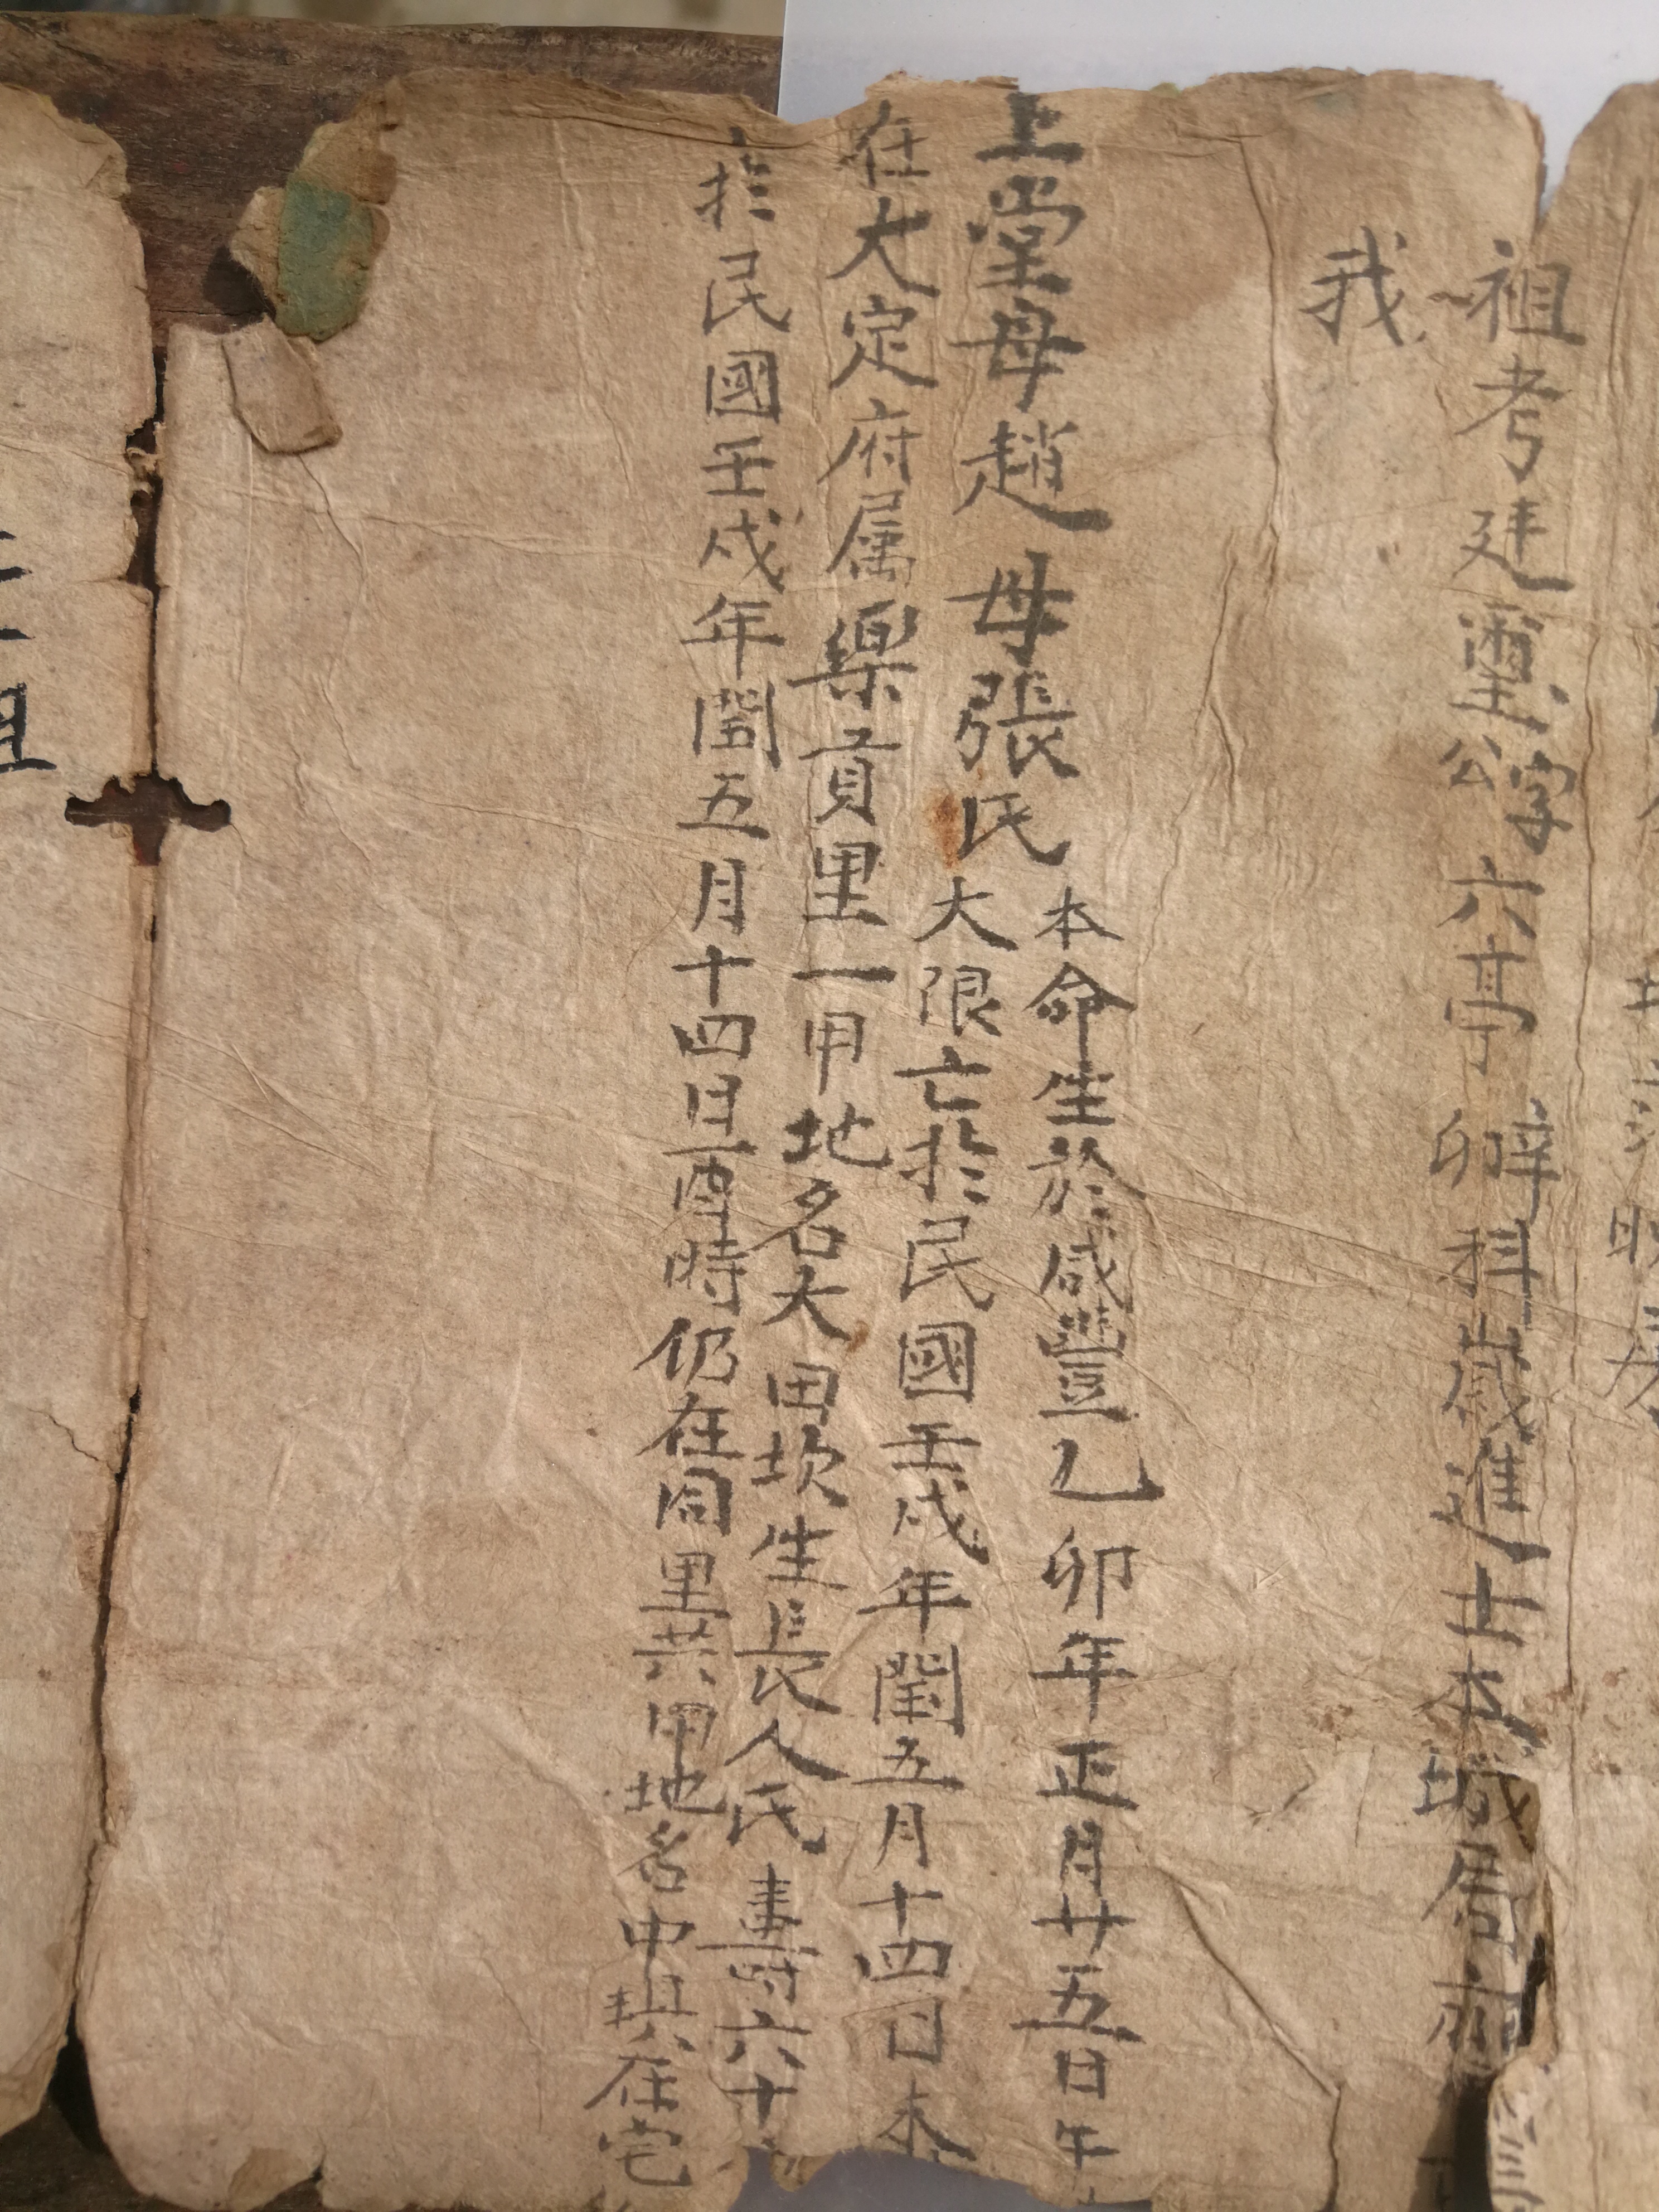 祖考廷璽公字六亭辭卯科歲進士本城居
我
上堂母趙母張氏本命生於咸豐乙卯年正月廿五日午
大限亡於民國壬戌年閏五月十四日未
在大定府属樂貢里一甲地名大田坎生長人氏壽六十
於民國壬戌年閏五月十四日酉時仍在同里共甲地名中琪在宅